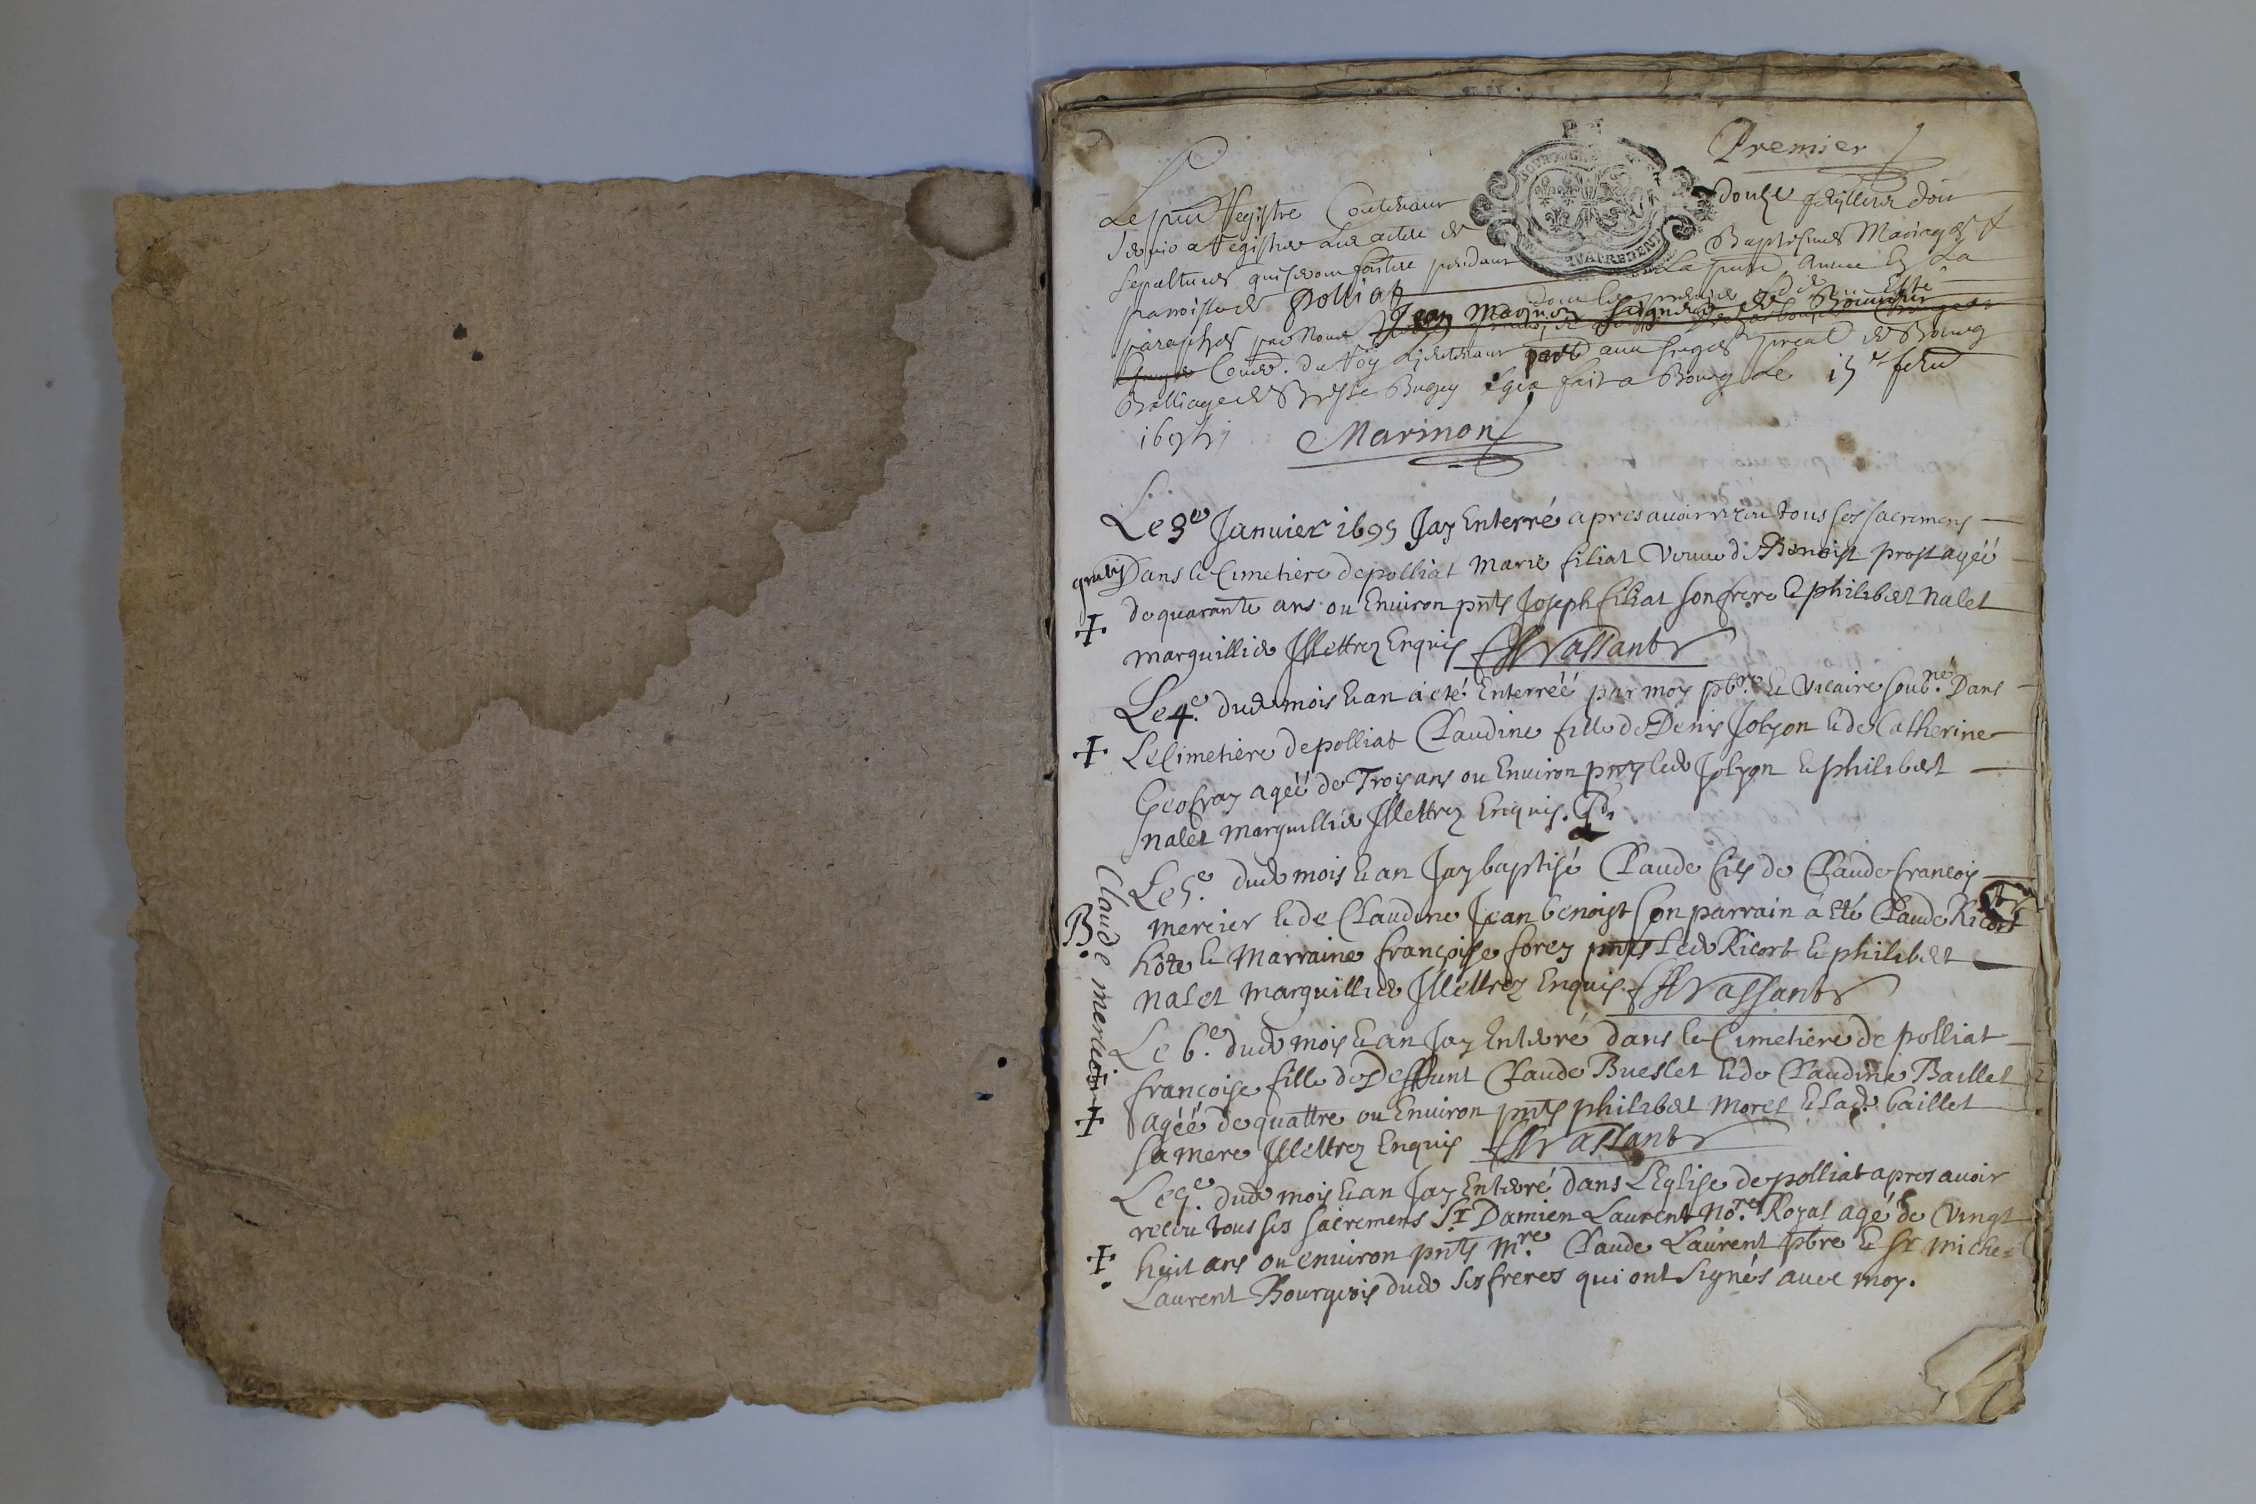 Premier
Le pnt Registre Contenant douze feuillets doit
servir a Registrer les actes de Baptesmes Mariages et
sepultures qui seront faittes pendant la pnte Annee En La
parroisse de polliat
paraphés par Nous Jean Marinon
Conser. du Roy Lieutenant part aux sieges preal de Bourg
Balliage de Bresse Bugey fait a Bourg Le
Marinon
Le 3e Janvier 1695 Jay Enterré apres avoir receu tous ses sacremens
Dans le Cimetiere de polliat Marie filiat Veuve de Benoist prost agéé
de quarante ans ou Environ pnts Joseph filiat son frere et philibert Nalet
marguillier Illettrez Enquis Vassant
Le 4e. dud mois et an à eté Enterréé par moy pbre. et Vicaire soubné. Dans
✝ Le Cimetiere de polliat Claudine fille de Denis Jolyon et de Catherine
Geofray agéé de Trois ans ou Environ pnts led Jolyon et philibert
nalet marguillier Illettrez Enquis.
Le 5e. dud mois et an Jay baptisé Claude fils de Claude françois
B. mercier et de Claudine Jean benoist son parrain à Eté Claude Ricort
hôte et Marraine françoise forez pnts Led Ricort et philibert
nalet marguillier Illettrez Enquis Vassant
Claude mercier
Le 6e. dud mois et an Jay Enterré dans le Cimetiere de polliat
françoise fille de Deffunt Claude Bueslet et de Claudine Baillet
✝ agéé de quattre ou Environ pnts philibert Morel et lad. baillet
sa mere Illettrez Enquis Vassant
Le dud mois et an Jay Enterré dans L'Eglise de polliat apres avoir
receu tous ses sacremens Sr Damien Laurent Nore. Royal agé de Vingt
✝ huit ans ou environ pnts Mre. Claude Laurent pbre et Sr Miche=
Laurent Bourgeois dud ses freres qui ont signés avec moy.